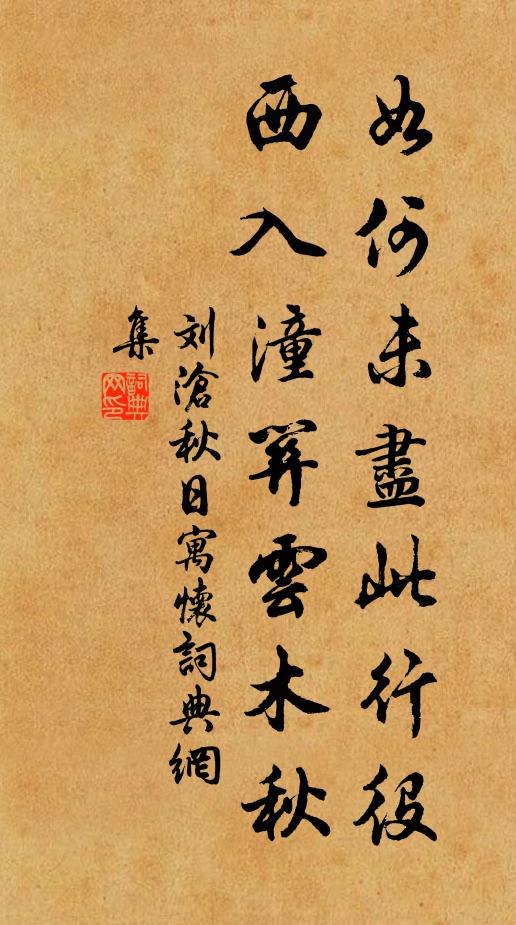 如何未盡此行役
西入潼関雲木秋
刘滄秋日寓懷詞典網
集
詞典
网印